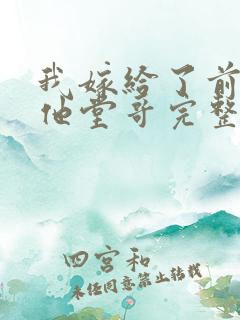 我嫁给了前
他堂哥完整
四宫和
未经同意禁止转载